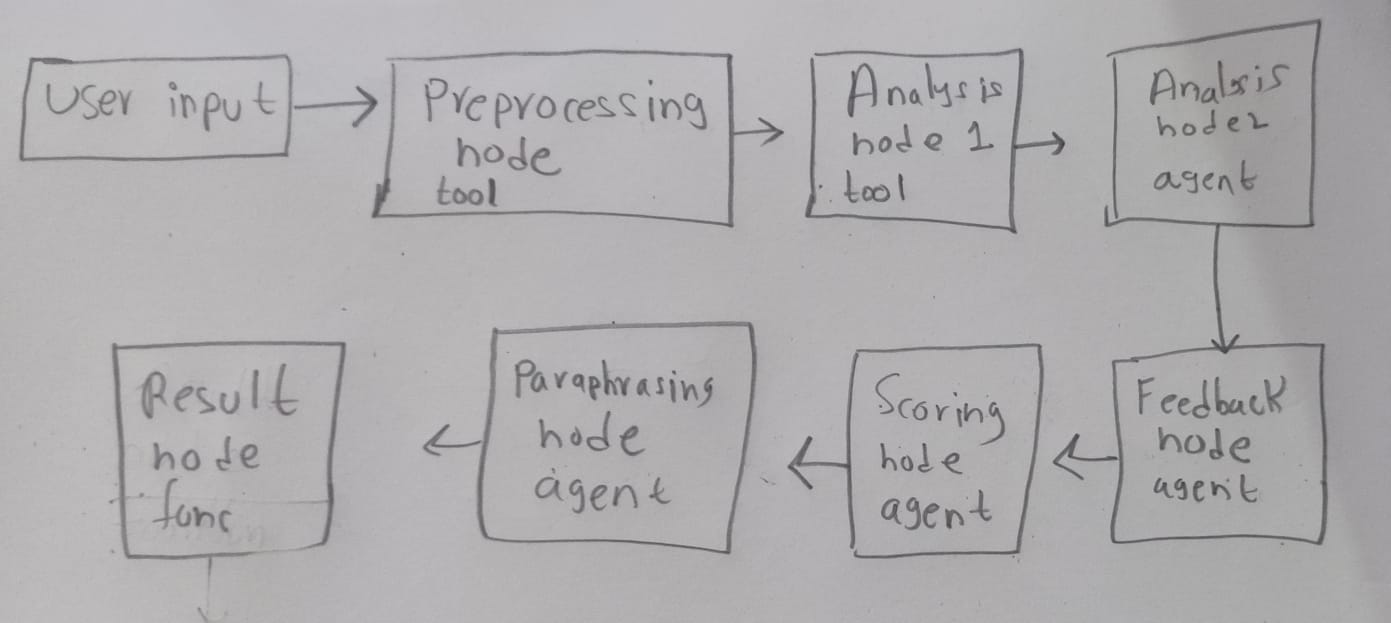 User input
Preprocessing
node
tool
Analysis
node 1
tool
Analsis
node2
agent
Feedback
node
agent
Scoring
node
agent
Paraphrasing
node
agent
Result
node
func